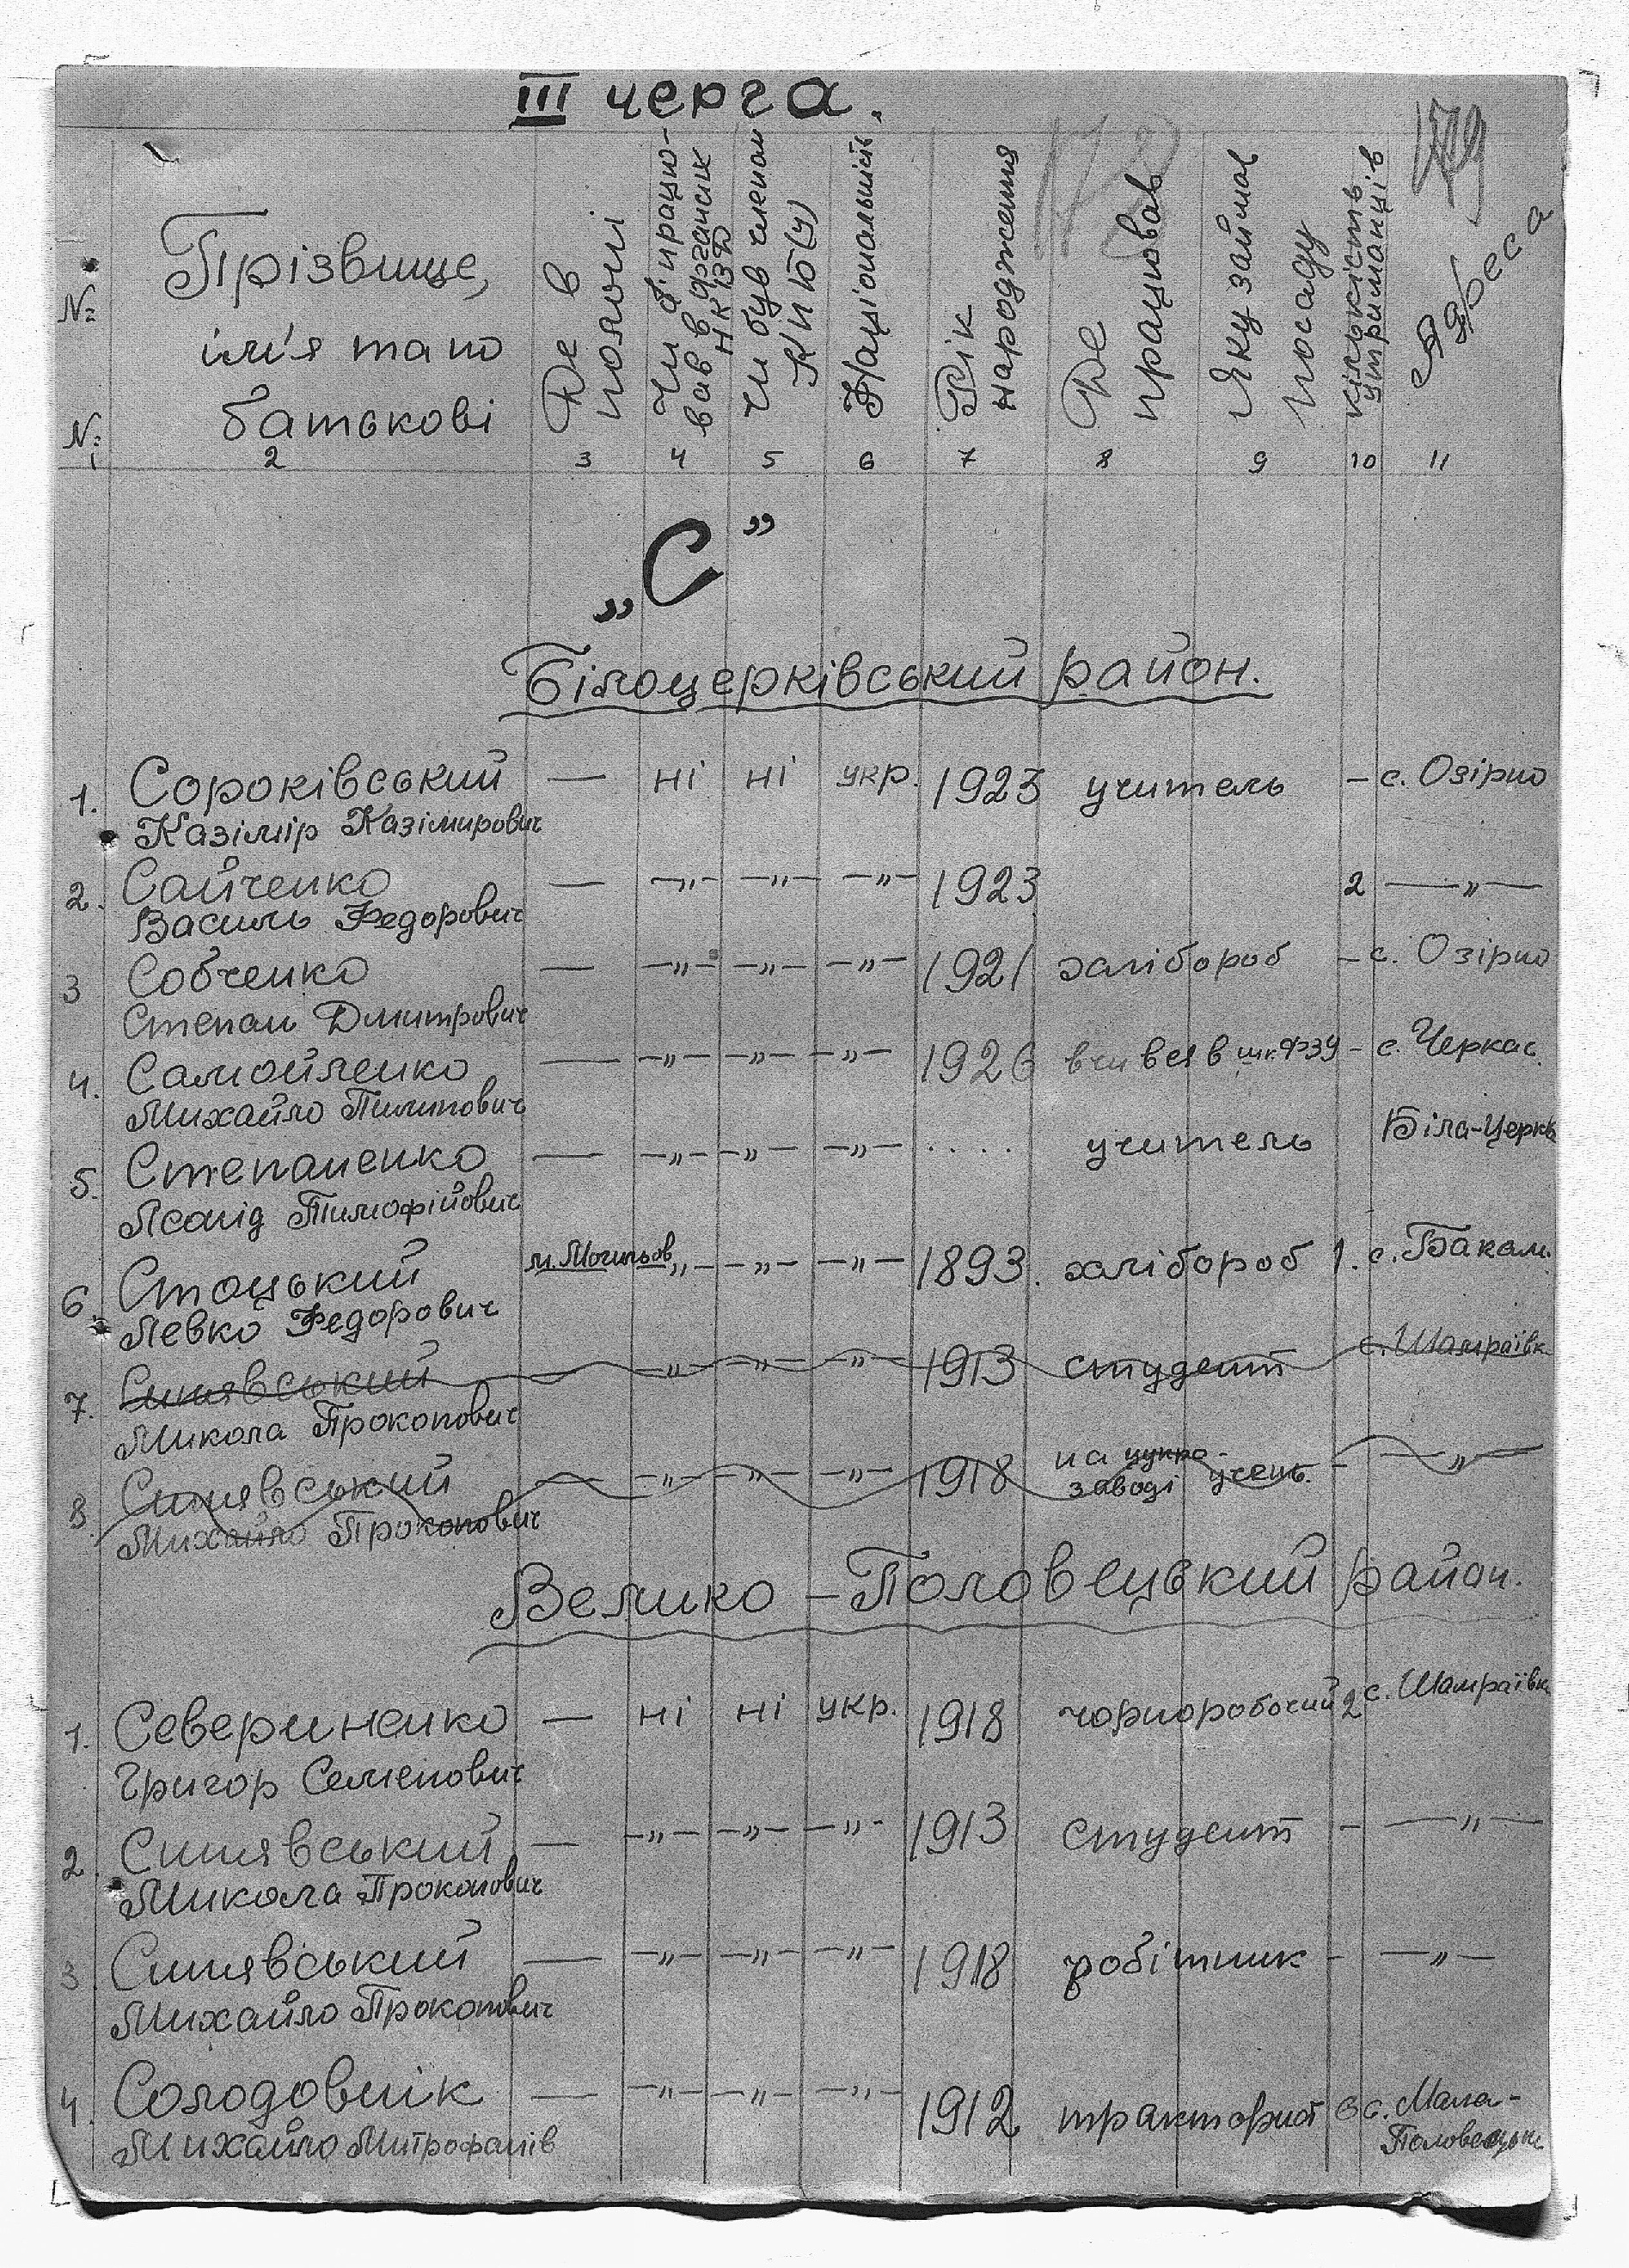 III черга.
179
№ №
Прізвище,
ім'я та по
батькові
Де в
полоні
Чи працю-
вав в органах
НКВД
Чи був членом
КП(у)
Національність
Рік
народження
Де
працював
Яку займав
посаду
Кількість
утриманців
1 2 3 4 5 6 7 8 9 10 11
„С”
Білоцерківський район.
1. Сороківський — ні ні укр. 1923 учитель — с. Озірно
Казімір Казімирович
2. Сайченко — —„— —„— —„— 1923 2 —„—
Василь Федорович
3 Собченко — —„— —„— —„— 1921 хлібороб — с. Озірно
Степан Дмитрович
4. Самойленко — —„— —„— —„— 1926 вчився в шк. ФЗУ - с. Черкас.
Михайло Пилипович
5. Степаненко — —„— —„— —„— .... учитель Біла-Церкв
Леонід Тимофійович
6. Стоцький м. Могильов —„— —„— —„— 1893. хлібороб 1. с. Бакал.
Левко Федорович
7. Синявський —„— —„— —„— 1913 студент с. Шамраївк.
Микола Прокопович
8. Синявський — —„— —„— —„— 1918 на цукро-
заводі учень. - —„—
Михайло Прокопович
Велико-Половецький район.
1. Севериненко — ні ні укр. 1918 чорноробочий 2 с. Шамраївка
Григор Семенович
2. Синявський — —„— —„— —„— 1913 студент - —„—
Микола Прокопович
3 Синявський — —„— —„— —„— 1918 робітник - —„—
Михайло Прокопович
4. Солодовнік — —„— —„— —„— 1912 тракторист с. Мала-
Половецьке
Михайло Митрофанів